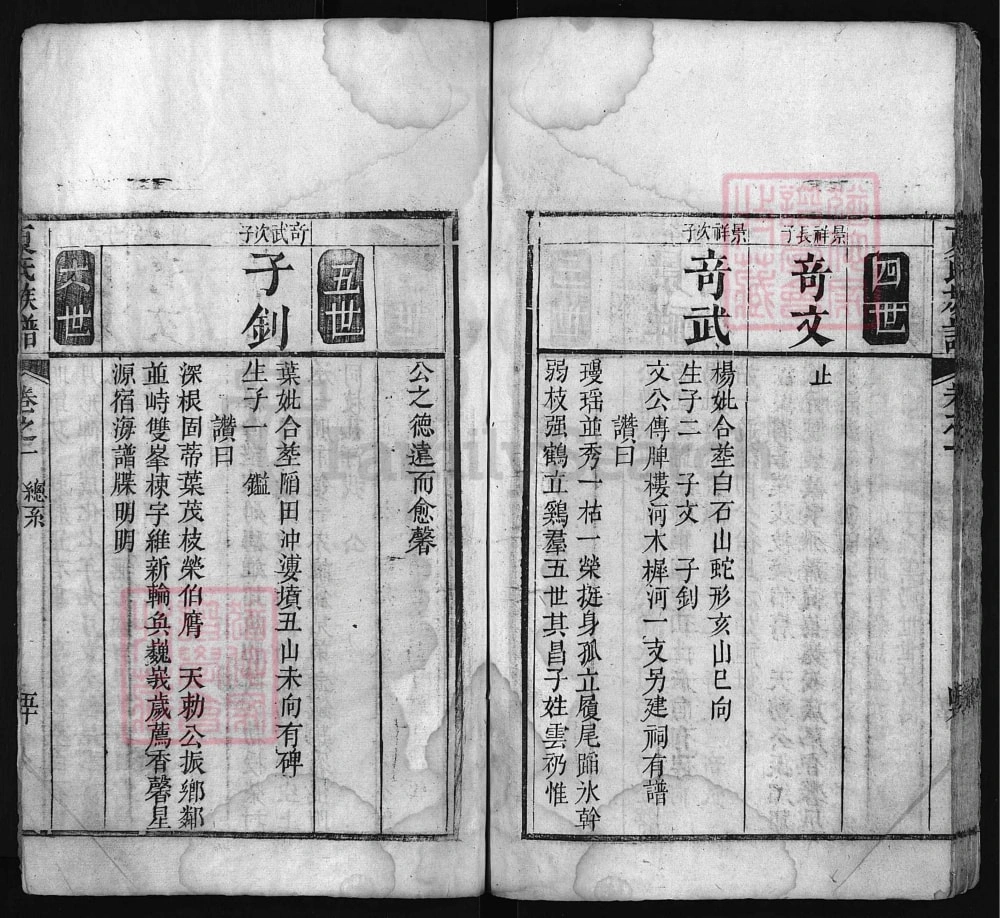 四世
景祥長子
竒文
止
景祥次子
竒武
楊妣合塟白石山蛇形亥山巳向
生子二　子文　子釗
文公傳脾樓河木樨河一支另建祠有譜
讚曰
瓊瑶並秀一枯一榮挺身孤立履尾蹈氷幹
弱枝强鶴立鷄羣五世其昌子姓雲礽惟
公之德遠而愈馨
五世
竒武次子
子釗
葉妣合塟陷田沖漊墳丑山未向有碑
生子一　鑑
讚曰
深根固蒂葉茂枝榮伯膺　天勅公振鄉鄰
並峙雙峯棟宇維新輪奐巍峩歲薦香馨星
源宿海譜牒明明
六世
氏族譜
卷之一
總系